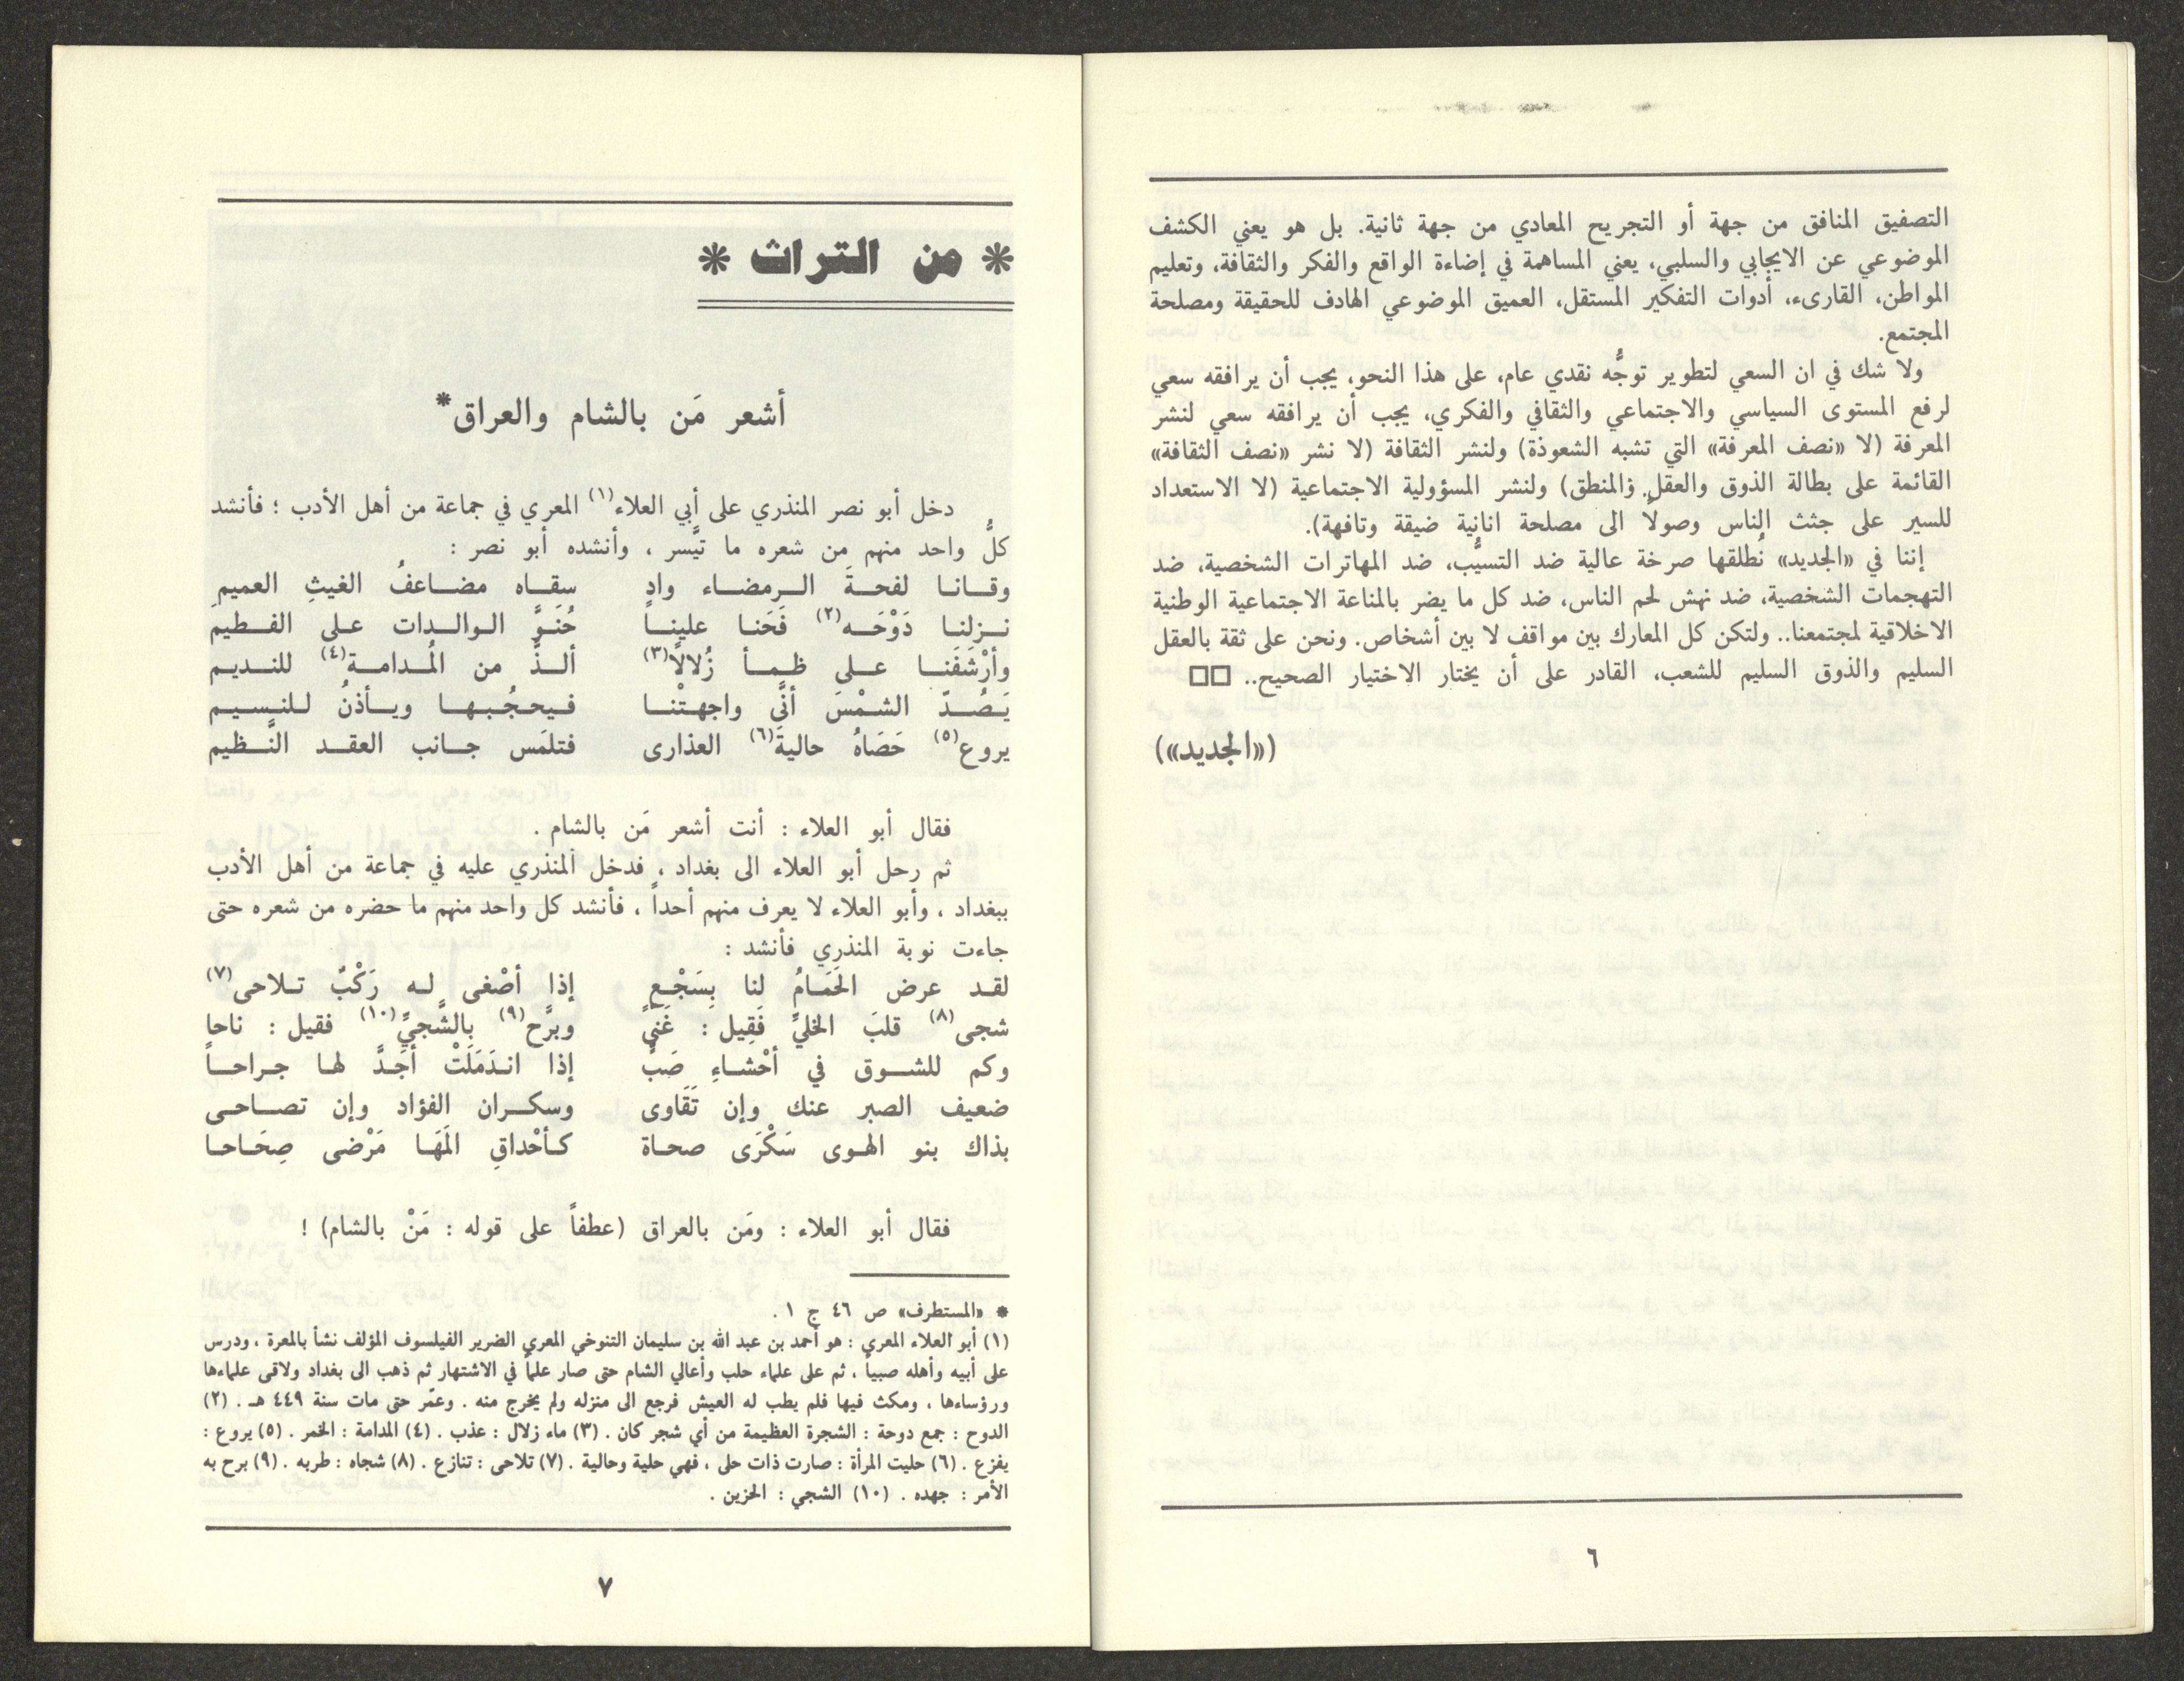 التصفيق المنافق من جهة أو التجريح المعادي من جهة ثانية. بل هو يعني الكشف
الموضوعي عن الايجابي والسلبي، يعني المساهمة في إضاءة الواقع والفكر والثقافة، وتعليم
المواطن، القارىء، أدوات التفكير المستقل، العميق الموضوعي الهادف للحقيقة ومصلحة
المجتمع.
ولا شك في ان السعي لتطوير توجُّه نقدي عام، على هذا النحو، يجب أن يرافقه سعي
لرفع المستوى السياسي والاجتماعي والثقافي والفكري، يجب أن يرافقه سعي لنشر
المعرفة (لا «نصف المعرفة» التي تشبه الشعوذة) ولنشر الثقافة (لا نشر «نصف الثقافة»
القائمة على بطالة الذوق والعقل والمنطق) ولنشر المسؤولية الاجتماعية (لا الاستعداد
للسير على جثث الناس وصولاً الى مصلحة انانية ضيقة وتافهة).
إننا في «الجديد» نُطلقها صرخة عالية ضد التسيُّب، ضد المهاترات الشخصية، ضد
التهجمات الشخصية، ضد نهش لحم الناس، ضد كل ما يضر بالمناعة الاجتماعية الوطنية
الاخلاقية لمجتمعنا.. ولتكن كل المعارك بين مواقف لا بين أشخاص. ونحن على ثقة بالعقل
السليم والذوق السليم للشعب، القادر على أن يختار الاختيار الصحيح.. □□
(«الجديد»)
٦
* من التراث *
أشعر مَن بالشام والعراق*
دخل أبو نصر المنذري على أبي العلاء(١) المعري في جماعة من أهل الأدب ؛ فأنشد
كلُّ واحد منهم من شعره ما تيَّسر ، وأنشده أبو نصر :
وقانا لفحةَ الرمضاء وادٍ سقاه مضاعفُ الغيثِ العميم
نزلنا دَوْحَه(٢) فَحَنا علينا حُنوَّ الوالدات على الفطيم
وأرْشَفَنا على ظمأ زُلالًا(٣) ألذَّ من المُدامة(٤) للنديم
يَصُدّ الشمْسَ أنَّى واجهتْنا فيحجُبها ويأذنُ للنسيم
يروع(٥) حَصَاهُ حاليةَ(٦) العذارى فتلمَس جانب العقد النَّظيم
فقال أبو العلاء : أنت أشعر مَن بالشام .
ثم رحل أبو العلاء الى بغداد ، فدخل المنذري عليه في جماعة من أهل الأدب
ببغداد ، وأبو العلاء لا يعرف منهم أحداً ، فأنشد كل واحد منهم ما حضره من شعره حتى
جاءت نوبة المنذري فأنشد :
لقد عرض الحَمَامُ لنا بِسَجْعٍ إذا أصْغى له رَكْبٌ تلاحى(٧)
شجى(٨) قلبَ الخليِّ فَقِيل : غَنىَّ وبرَّح(٩) بِالشَّجيِّ(١٠) فقيل : ناحا
وكم للشوق في أحْشاءِ صَبٍّ إذا اندَمَلَتْ أجَدَّ لها جراحاً
ضعيف الصبر عنك وإن تَقَاوى وسكران الفؤاد وإن تصاحى
بذاك بنو الهوى سَكْرَى صحاة كأحْداقِ المَهَا مَرْضى صِحَاحا
فقال أبو العلاء : ومَن بالعراق (عطفاً على قوله : مَنْ بالشام) !
* «المستطرف» ص ٤٦ ج ١ .
(١) أبو العلاء المعري : هو أحمد بن عبد الله بن سليمان التنوخي المعري الضرير الفيلسوف المؤلف نشأ بالمعرة ، ودرس
على أبيه وأهله صبياً ، ثم على علماء حلب وأعالي الشام حتى صار علماً في الاشتهار ثم ذهب الى بغداد ولاقى علماءها
ورؤساءها ، ومكث فيها فلم يطب له العيش فرجع الى منزله ولم يخرج منه . وعمّر حتى مات سنة ٤٤٩ هـ . (٢)
الدوح : جمع دوحة : الشجرة العظيمة من أي شجر كان . (٣) ماء زلال : عذب . (٤) المدامة : الخمر . (٥) يروع :
يفزع . (٦) حليت المرأة : صارت ذات حلى ، فهي حلية وحالية . (٧) تلاحى : تنازع . (٨) شجاه : طربه . (٩) برح به
الأمر : جهده . (١٠) الشجي : الحزين .
٧